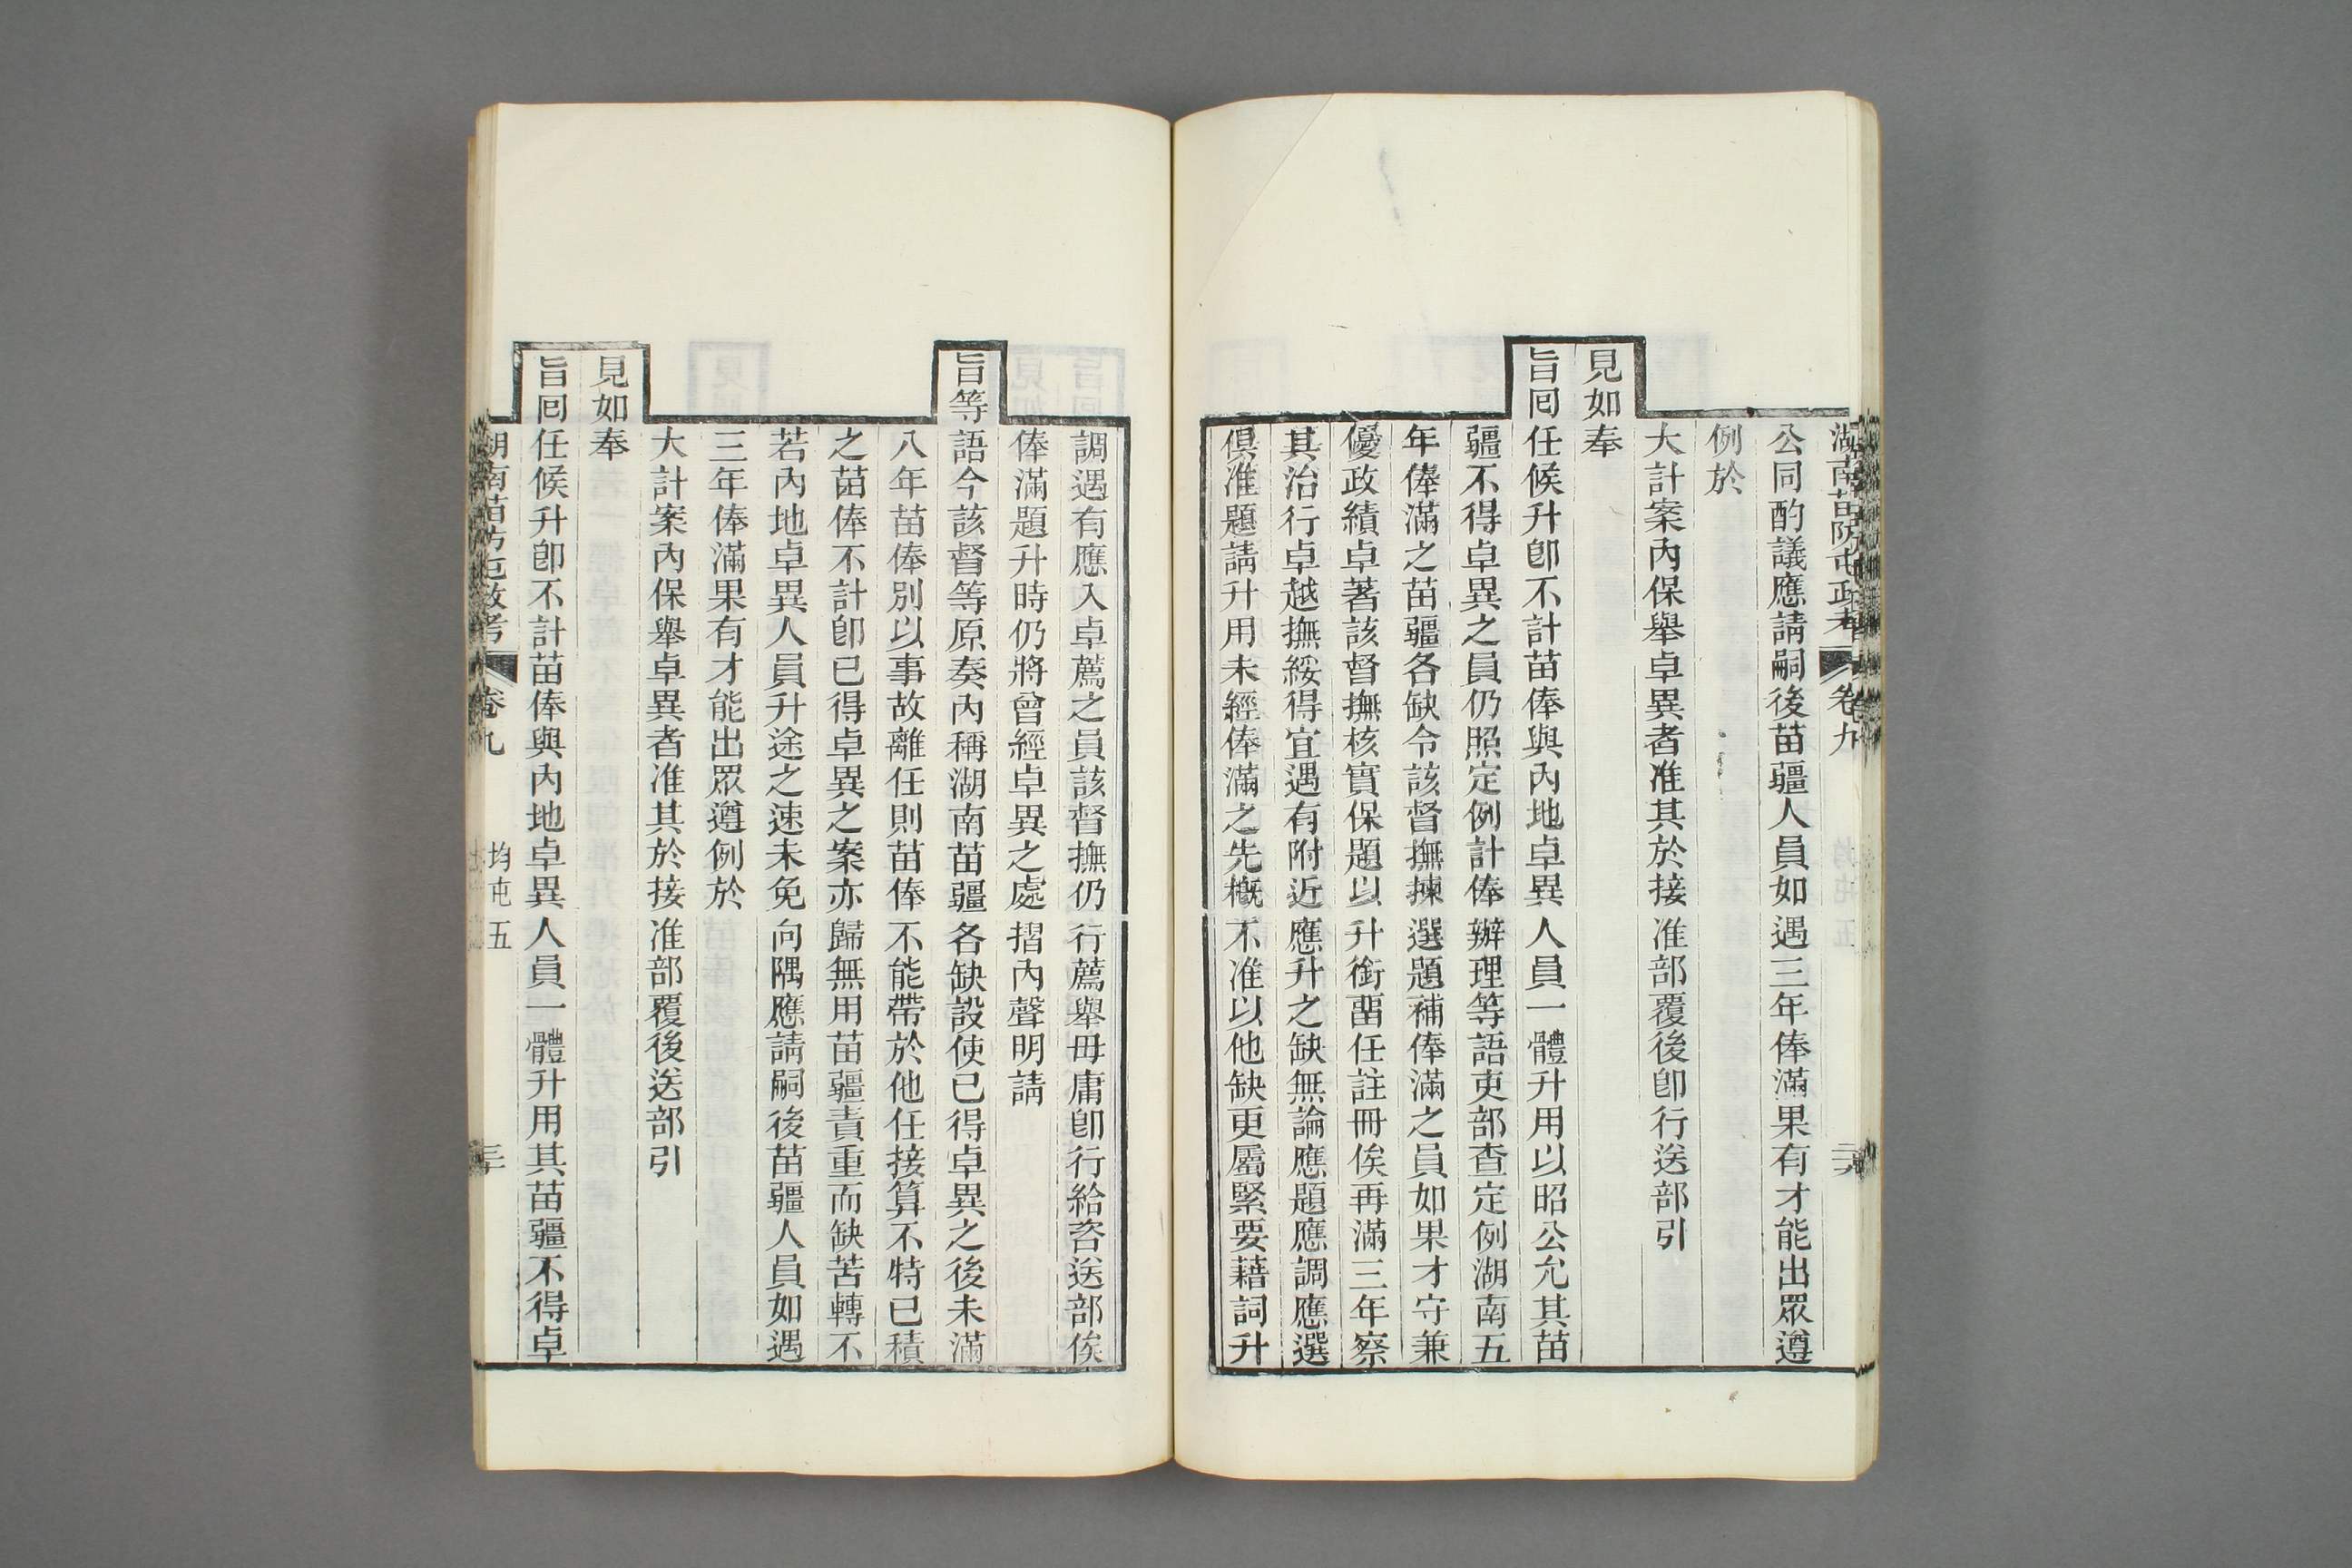 湖南苗防屯政考 卷九 二九
公同酌議應請嗣後苗疆人員如遇三年俸滿果有才能出眾遵
例於
大計案內保舉卓異者准其於接准部覆後卽行送部引
見如奉
旨囘任候升卽不計苗俸與內地卓異人員一體升用以昭公允其苗
疆不得卓異之員仍照定例計俸辦理等語吏部查定例湖南五
年俸滿之苗疆各缺令該督撫揀選題補俸滿之員如果才守兼
優政績卓著該督撫核實保題以升銜畱任註冊俟再滿三年察
其治行卓越撫綏得宜遇有附近應升之缺無論應題應調應選
俱准題請升用未經俸滿之先槪不准以他缺更屬緊要藉詞升
調遇有應入卓薦之員該督撫仍行薦舉毋庸卽行給咨送部俟
俸滿題升時仍將曾經卓異之處摺內聲明請
旨等語今該督等原奏內稱湖南苗疆各缺設使已得卓異之後未滿
八年苗俸別以事故離任則苗俸不能帶於他任接算不特已積
之苗俸不計卽已得卓異之案亦歸無用苗疆責重而缺苦轉不
若內地卓異人員升途之速未免向隅應請嗣後苗疆人員如遇
三年俸滿果有才能出眾遵例於
大計案內保舉卓異者准其於接准部覆後送部引
見如奉
旨囘任候升卽不計苗俸與內地卓異人員一體升用其苗疆不得卓
湖南苗防屯政考 卷九 均屯五 三十